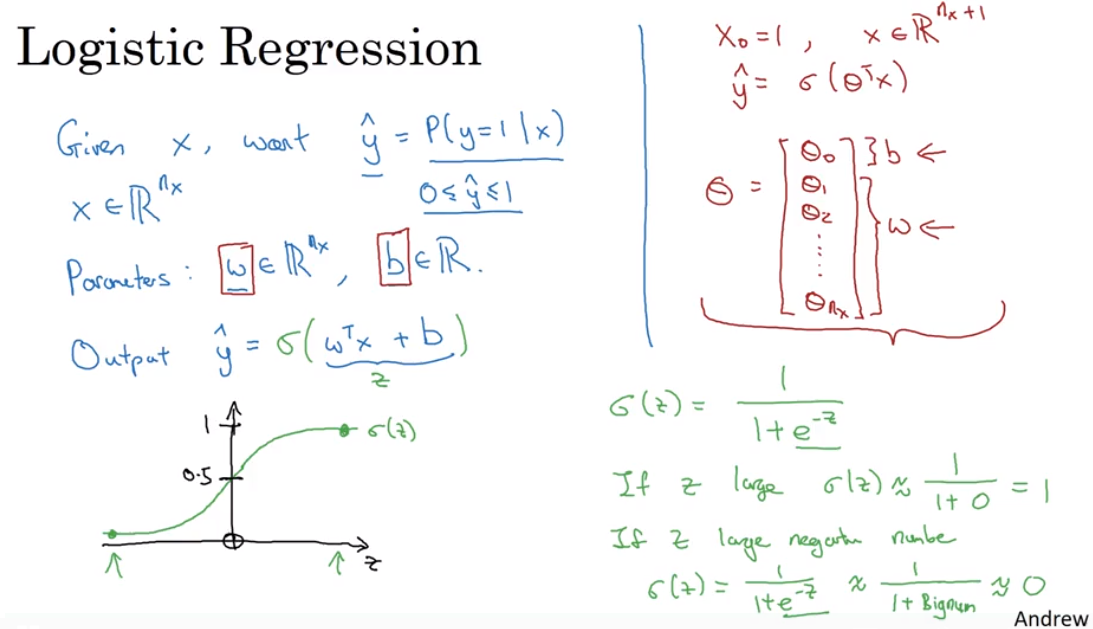 Logistic Regression
Given x, want ŷ = P(y=1|x)
x ∈ ℝ^nx
0 ≤ ŷ ≤ 1
Parameters: w ∈ ℝ^nx, b ∈ ℝ.
Output ŷ = σ(wᵀx + b)
z
1
σ(z)
0.5
z
x₀ = 1, x ∈ ℝ^nx+1
ŷ = σ(θᵀx)
θ = [θ₀ θ₁ θ₂ ⋮ θnx] } b ← } w ←
σ(z) = 1/(1+e^-z)
If z large σ(z) ≈ 1/(1+0) = 1
If z large negative numbe
σ(z) = 1/(1+e^-z) ≈ 1/(1+Bignum) ≈ 0
Andrew